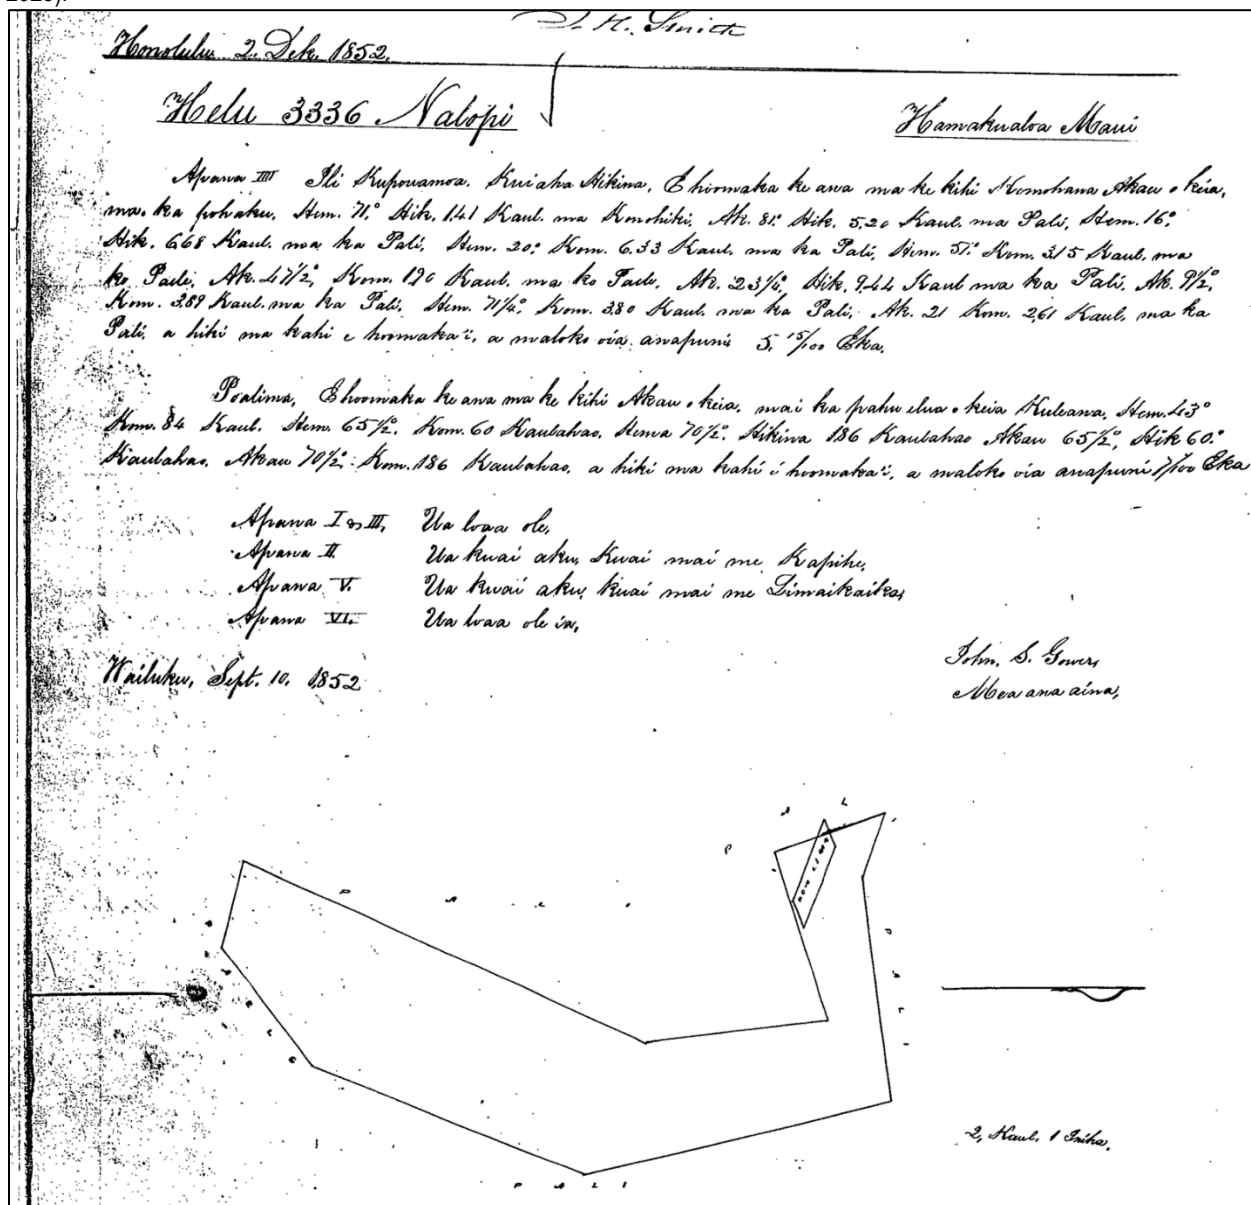 2020).
J. H. Smith
Honolulu 2. Dek. 1852.
Helu 3336 Nalopi
Hamakualoa Maui
Apana IIII Ili Kupouamoa. Kuiaha Hikina, E hoomaka ke ana ma ke kihi Komohana Akau o keia,
ma ka pohaku, Hem. 71.° Hik. 1.41 Kaul. ma Konohiki, Ak. 81.° Hik. 5.20 Kaul. ma Pali, Hem. 16.°
Hik. 6.68 Kaul. ma ka Pali, Hem. 20.° Kom. 6.33 Kaul. ma ka Pali, Hem. 51.° Kom. 3.15 Kaul. ma
ka Pali, Ak. 47½, Kom. 1.90 Kaul. ma ka Pali, Ak. 23¼, Hik. 9.44 Kaul ma ka Pali. Ak. 9½°,
Kom. 3.89 Kaul. ma ka Pali, Hem. 71¼.° Kom. 3.80 Kaul. ma ka Pali, Ak. 21 Kom. 2.61 Kaul. ma ka
Pali, a hiki ma kahi e hoomaka'i, a maloko oia anapuni 5. 15/100 Eka.
Poalima, E hoomaka ke ana ma ke kihi Akau o keia, mai ka pahu elua o keia Kuleana, Hem. 43°
Kom. 84 Kaul. Hem. 65½.° Kom. 60 Kaulahao, Hema 70½.° Hikina 186 Kaulahao Akau 65½°, Hik 60.°
Kaulahao, Akau 70½.° Kom. 186 Kaulahao, a hiki ma kahi i hoomaka'i, a maloko oia anapuni 7/100 Eka
Apana I & III, Ua loaa ole,
Apana II Ua kuai aku, Kuai mai me Kapihe,
Apana V. Ua kuai aku, kuai mai me Limaikaika,
Apana VI. Ua loaa ole ia,
Wailuku, Sept. 10. 1852
John, S. Gower,
Mea ana aina,
PALI
POALIMA
PALI
PALI
PALI
PALI
2, Kaul. 1 Iniha.